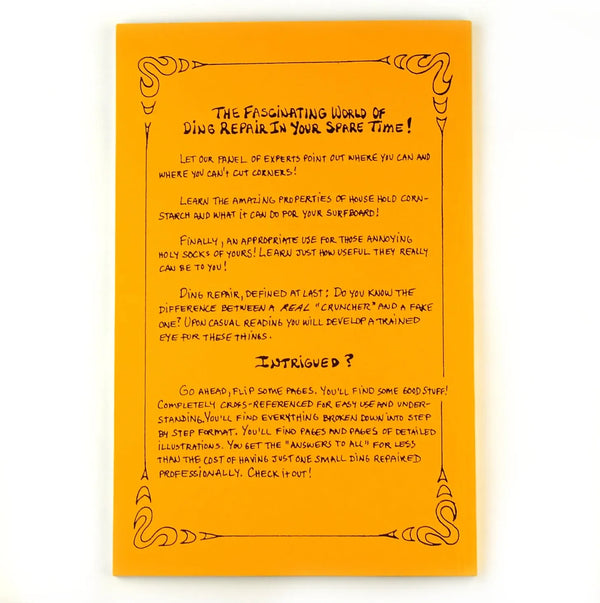 THE FASCINATING WORLD OF
DING REPAIR IN YOUR SPARE TIME!
LET OUR PANEL OF EXPERTS POINT OUT WHERE YOU CAN AND
WHERE YOU CAN'T CUT CORNERS!
LEARN THE AMAZING PROPERTIES OF HOUSE HOLD CORN-
STARCH AND WHAT IT CAN DO FOR YOUR SURFBOARD!
FINALLY, AN APPROPRIATE USE FOR THOSE ANNOYING
HOLY SOCKS OF YOURS! LEARN JUST HOW USEFUL THEY REALLY
CAN BE TO YOU!
DING REPAIR, DEFINED AT LAST: DO YOU KNOW THE
DIFFERENCE BETWEEN A REAL "CRUNCHER" AND A FAKE
ONE? UPON CASUAL READING YOU WILL DEVELOP A TRAINED
EYE FOR THESE THINGS.
INTRIGUED?
GO AHEAD, FLIP SOME PAGES. YOU'LL FIND SOME GOOD STUFF!
COMPLETELY CROSS-REFERENCED FOR EASY USE AND UNDER-
STANDING. YOU'LL FIND EVERYTHING BROKEN DOWN INTO STEP
BY STEP FORMAT. YOU'LL FIND PAGES AND PAGES OF DETAILED
ILLUSTRATIONS. YOU GET THE "ANSWERS TO ALL" FOR LESS
THAN THE COST OF HAVING JUST ONE SMALL DING REPAIRED
PROFESSIONALLY. CHECK it OUT!